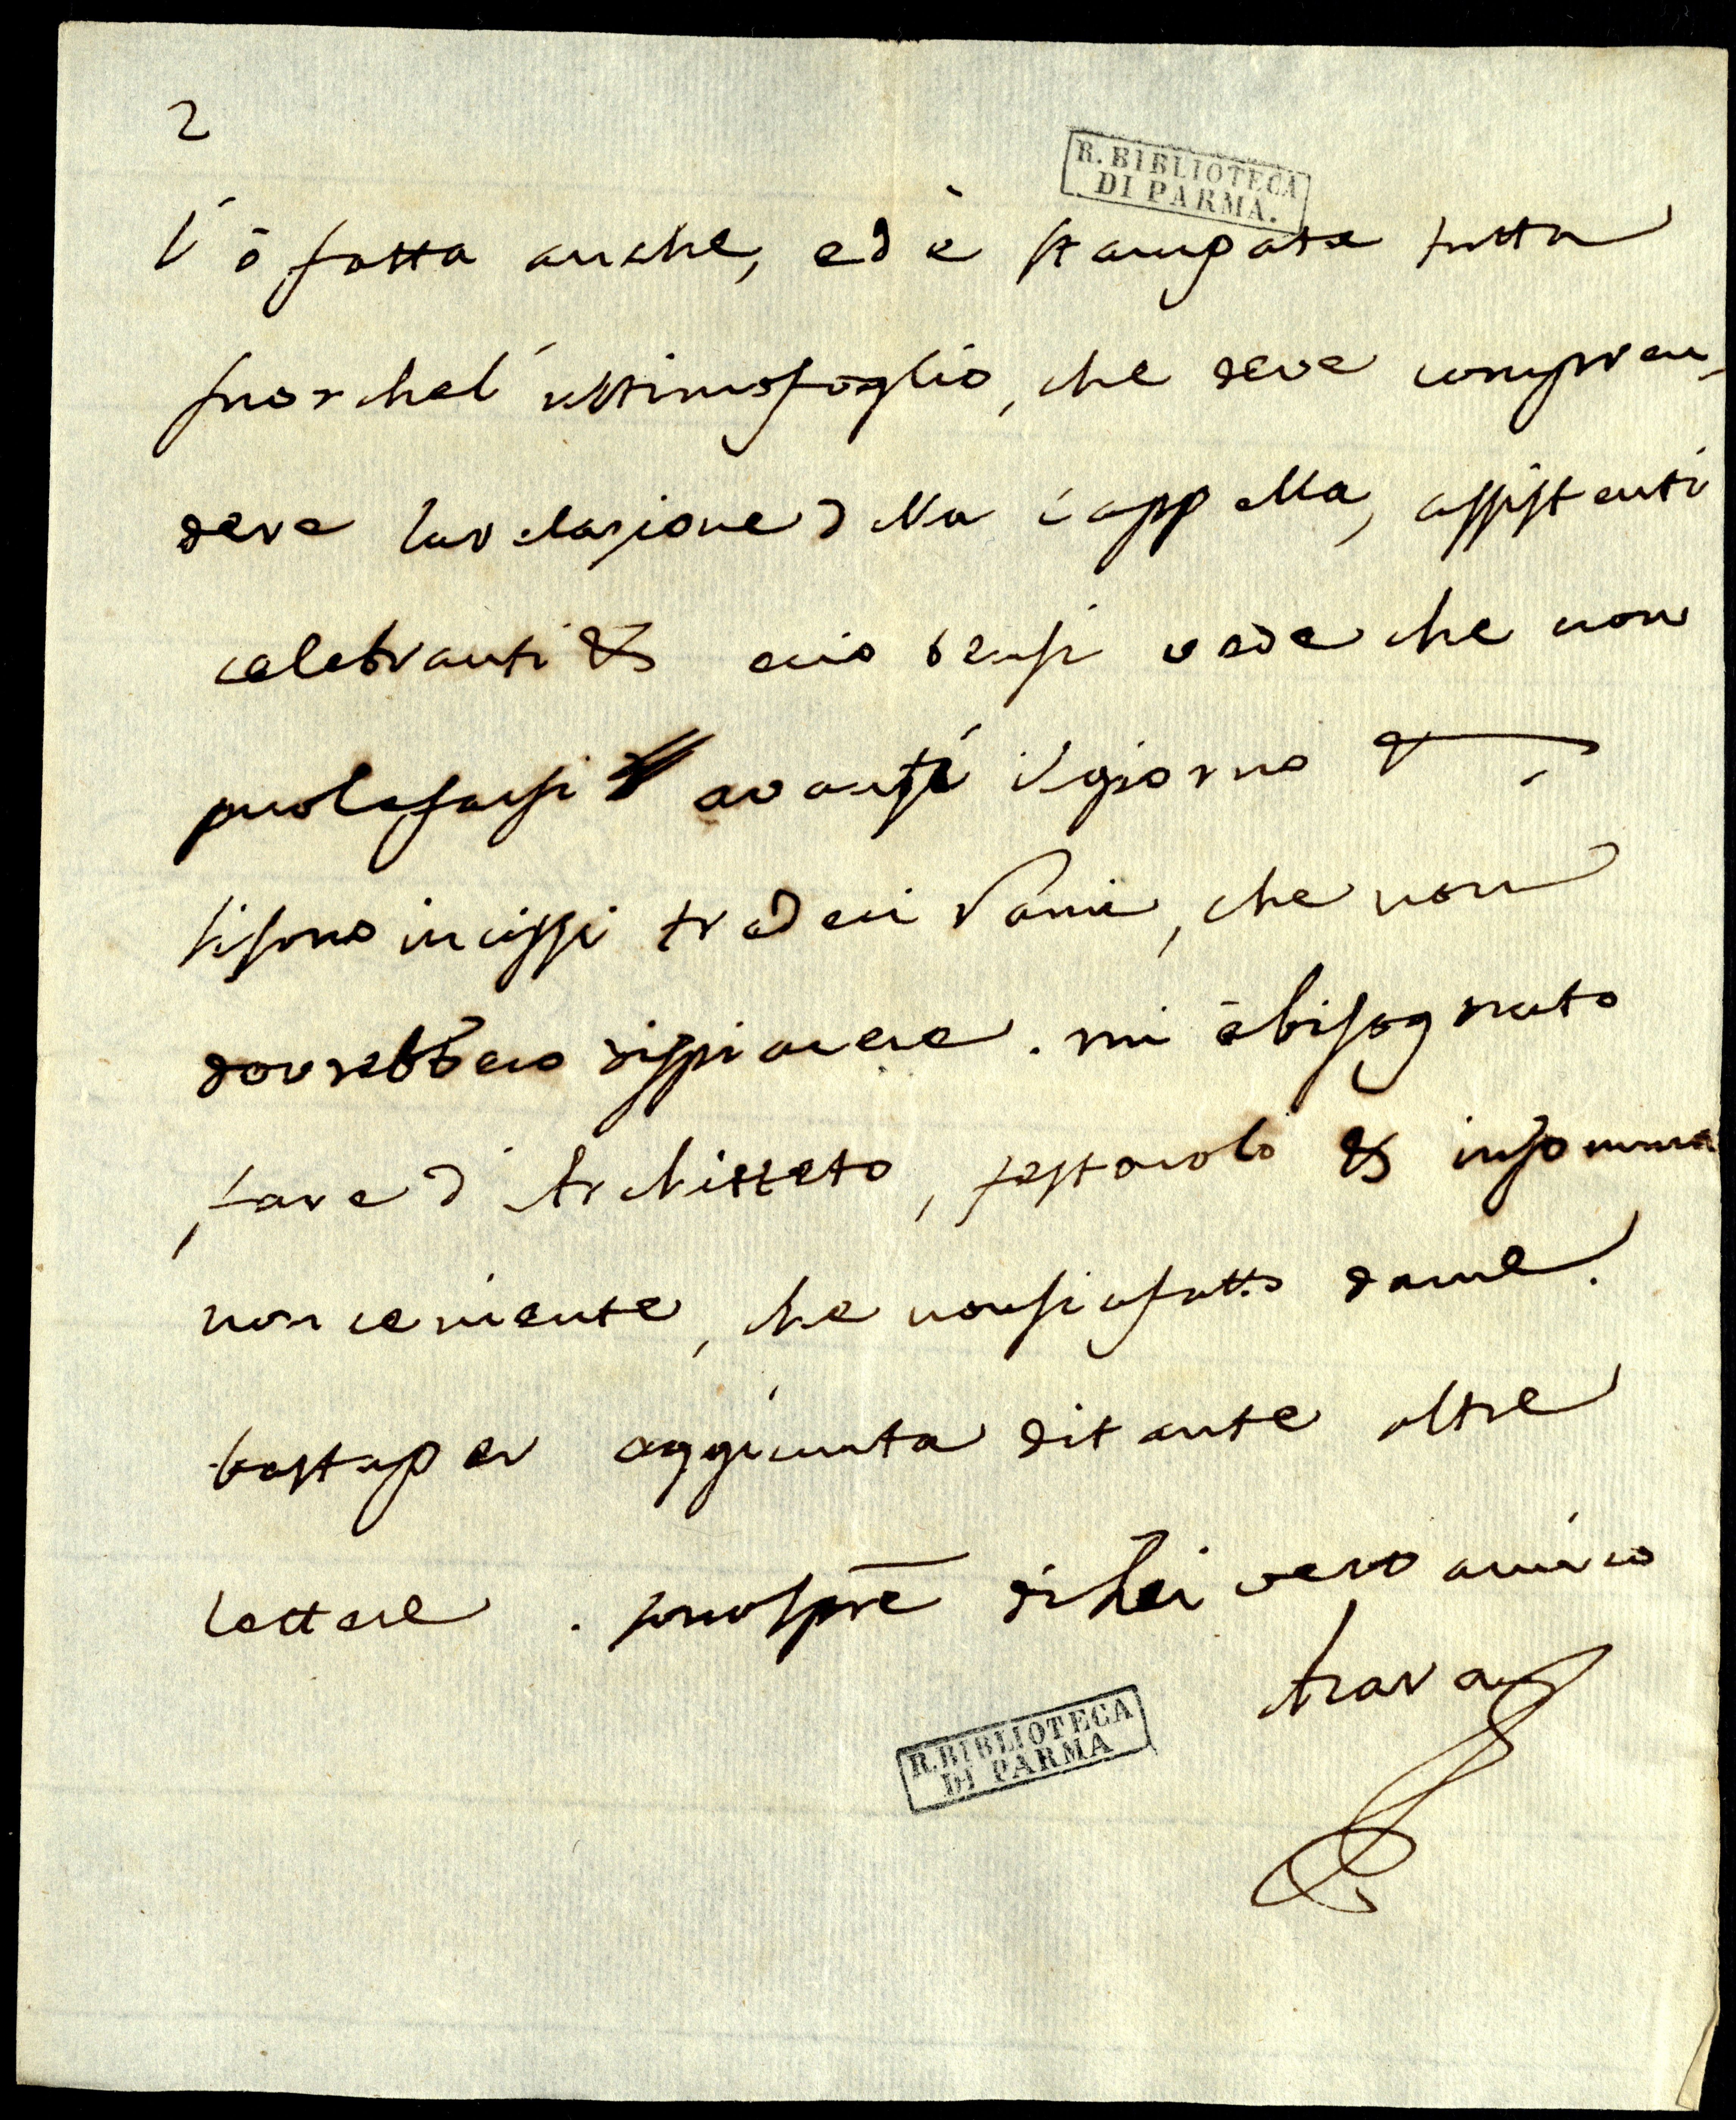 2
R. BIBLIOTECA
DI PARMA.
l'ò fatta anche, ed è stampata tutta
fuorchel'ultimofoglio, che deve compren,
dere larelazione della cappella, assistenti
celebranti &c ecio bensi vede che non
puolefarsi avanti ilgiorno &
sisono incissi tredeci Rami, che non
dovrebbero dispiacere. mi èbisognato
fare d'Architteto, festarolo &c insomma
non ceniente, che nonsiafatto dame.
bastaper aggiunta ditante altre
lettere. sonospre di Lei vero amico
R. BIBLIOTECA
DI PARMA